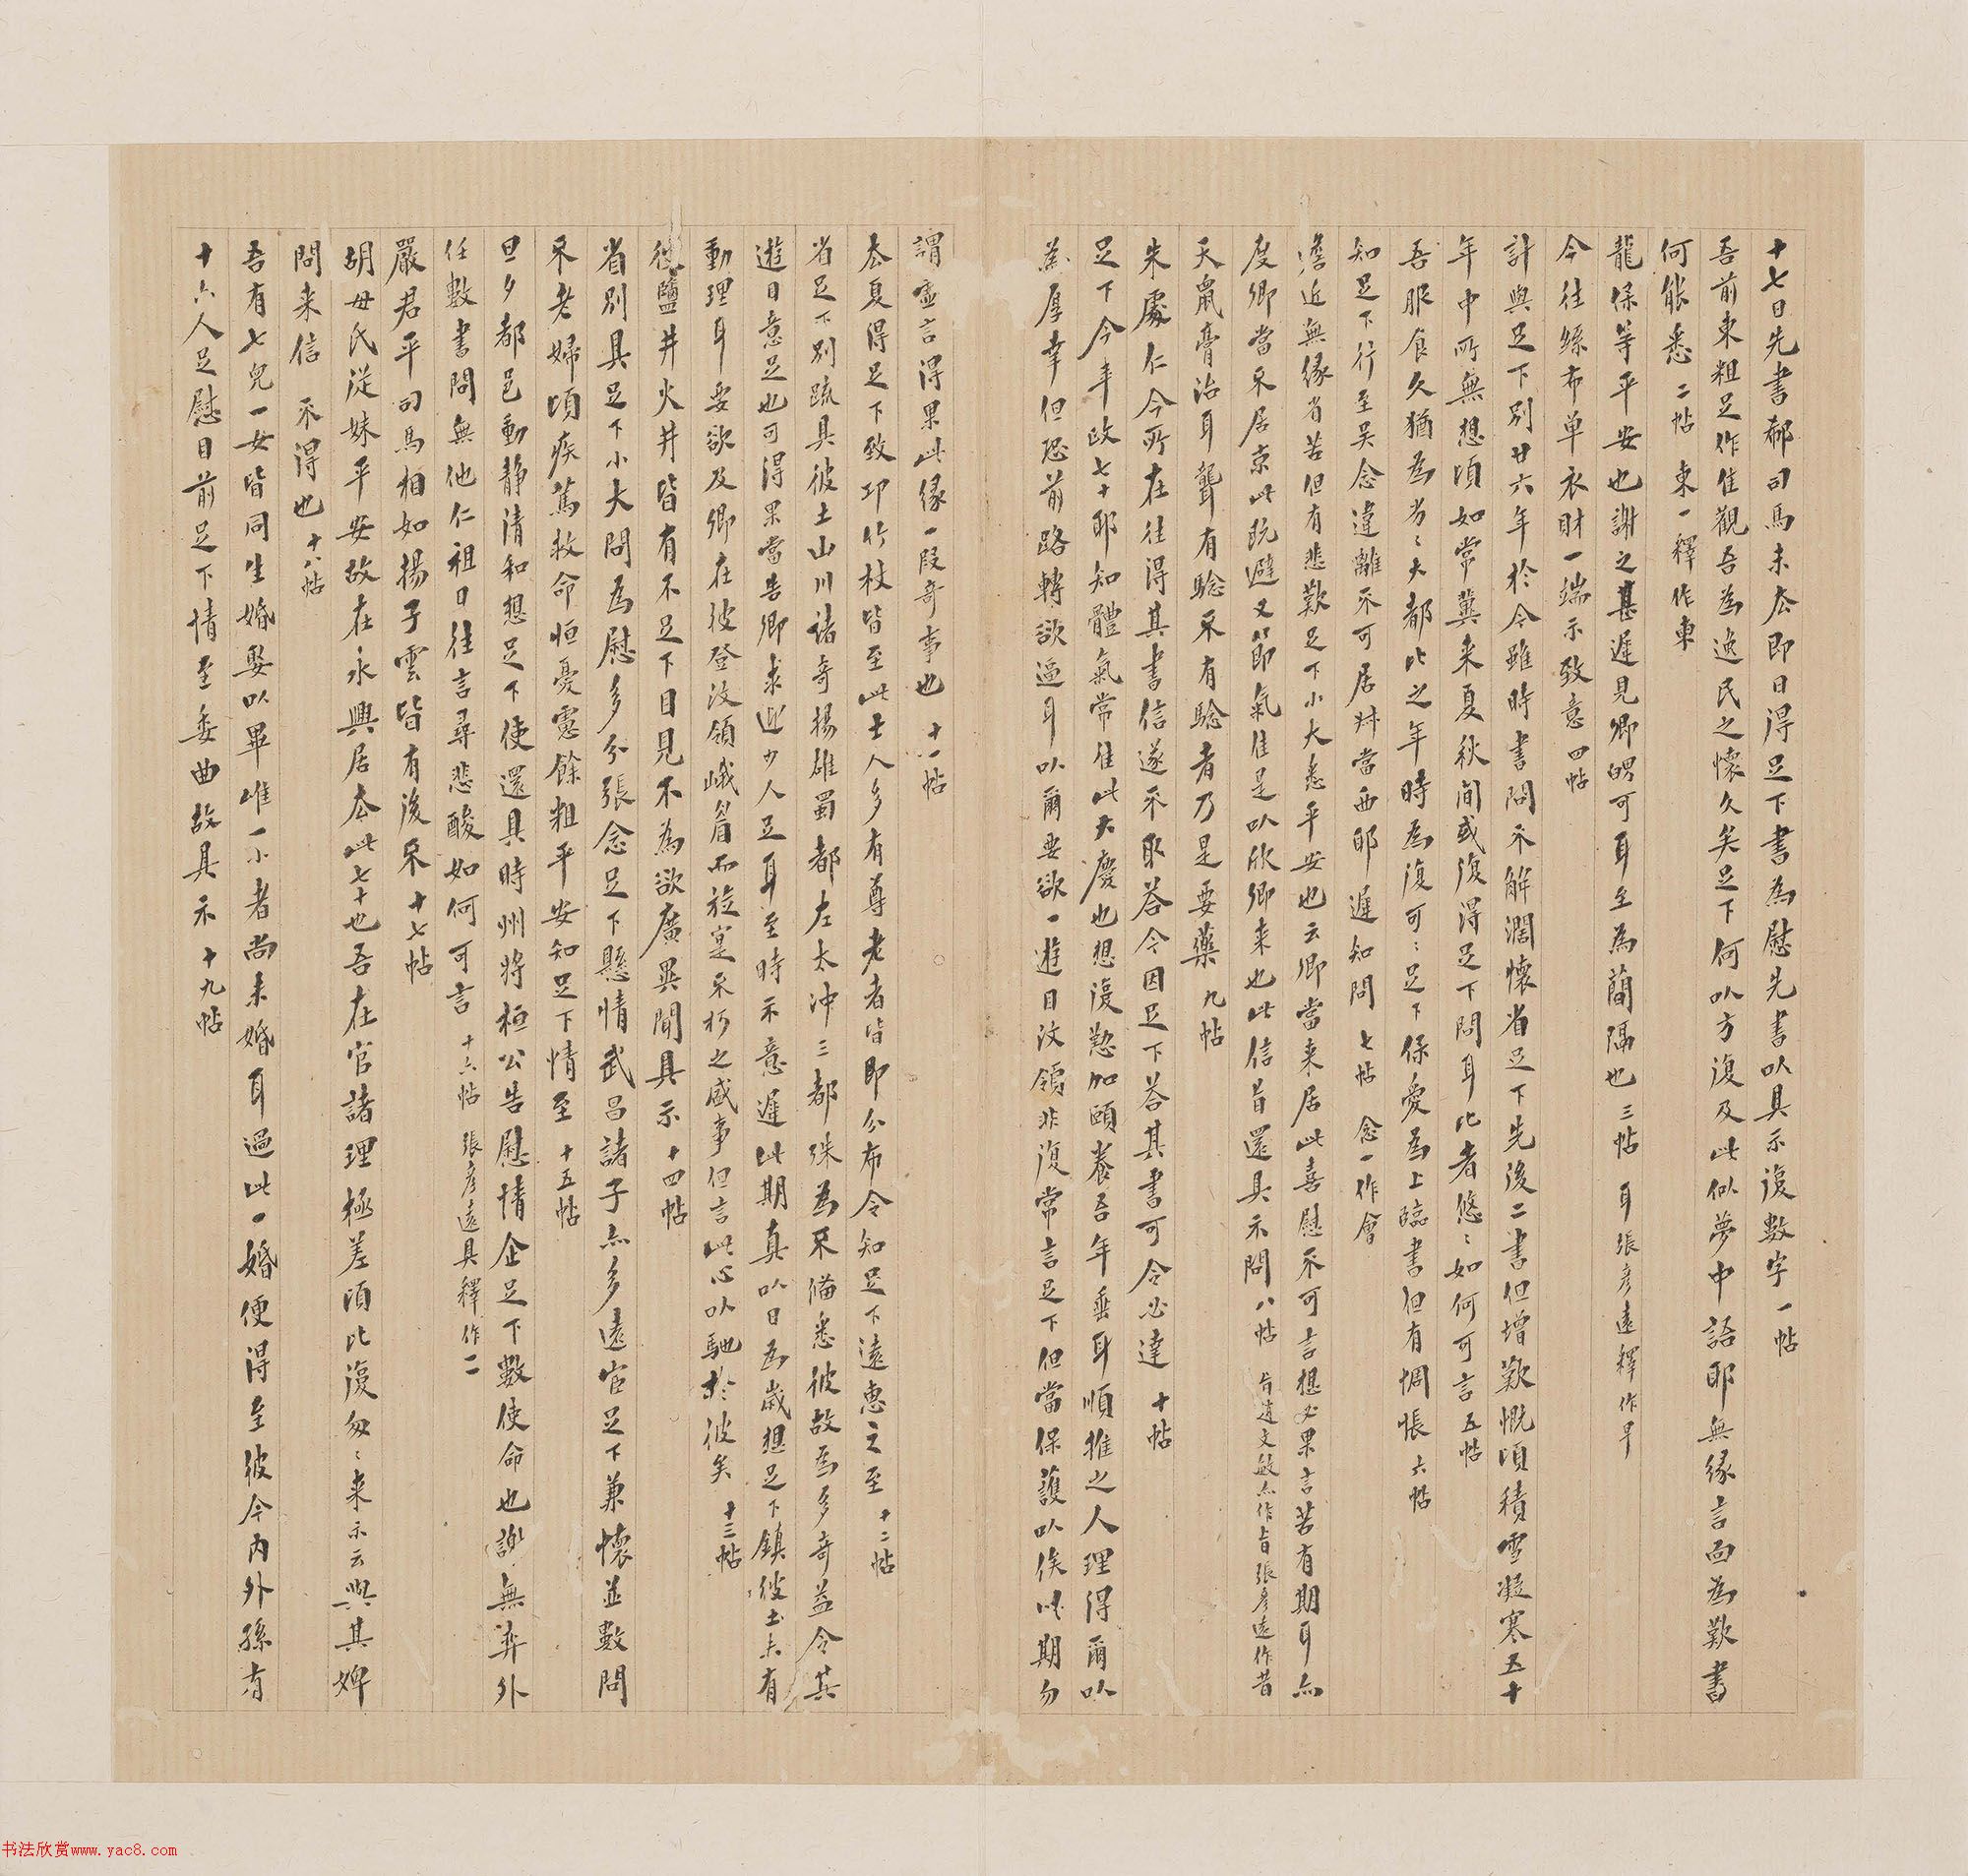 十七日先書郗司馬未去即日得足下書為慰先書以具示復數字 一帖
吾前東粗足作佳觀吾為逸民之懷久矣足下何以方復及此似夢中語耶無緣言面為歎書
何能悉 二帖 東一釋作東
龍保等平安也謝之甚遲見卿舅可耳至為簡隔也 三帖 耳張彥遠釋作早
今往絲布單衣財一端示致意 四帖
計與足下別廿六年於今雖時書問不解濶懷省足下先後二書但增歎慨頃積雪凝寒五十
年中所無想頃如常冀来夏秋間或復得足下問耳比者悠〻如何可言 五帖
吾服食久猶為劣〻大都比之年時為復可〻足下保愛為上臨書但有惆悵 六帖
知足下行至吳念違離不可居叔當西耶遲知問 七帖 念一作會
瞻近無緣省苦但有悲歎足下小大悉平安也云卿當来居此喜慰不可言想必果言苦有期耳亦
度卿當不居京此既避又節氣佳是以欣卿来也此信旨還具示問 八帖 旨趙文敏亦作旨張彥遠作昔
天鼠膏治耳聾有驗不有驗者乃是要藥 九帖
朱處仁今所在往得其書信遂不取荅今因足下荅其書可令必達 十帖
足下今年政七十耶知體氣常佳此大慶也想復懃加頤養吾年垂耳順推之人理得爾以
為厚幸但恐前路轉欲逼耳以爾要欲一遊目汶領非復常言足下但當保護以俟此期勿
謂虛言得果此緣一段奇事也 十一帖
去夏得足下致邛竹杖皆至此士人多有尊老者皆即分布令知足下遠惠之至 十二帖
省足下別疏具彼土山川諸奇揚雄蜀都左太沖三都殊為不備悉彼故為多奇益令其
遊目意足也可得果當告卿求迎少人足耳至時示意遲此期真以日為歲想足下鎮彼土未有
動理耳要欲及卿在彼登汶領峨眉而旋寔不朽之盛事但言此心以馳於彼矣 十三帖
彼鹽井火井皆有不足下目見不為欲廣異聞具示 十四帖
省別具足下小大問為慰多分張念足下懸情武昌諸子亦多遠宦足下兼懷並數問
不老婦頃疾篤救命恒憂慮餘粗平安知足下情至 十五帖
旦夕都邑動靜清和想足下使還具時州將桓公告慰情企足下數使命也謝無奕外
任數書問無他仁祖日往言尋悲酸如何可言 十六帖 張彥遠具釋作二
嚴君平司馬相如揚子雲皆有後不 十七帖
胡毋氏從妹平安故在永興居去此七十也吾在官諸理極差頃比復匆〻来示云與其婢
問来信 不得也 十八帖
吾有七兒一女皆同生婚娶以畢唯一小者尚未婚耳過此一婚便得至彼今內外孫有
十六人足慰目前足下情至委曲故具示 十九帖
书法欣赏www.yac8.com